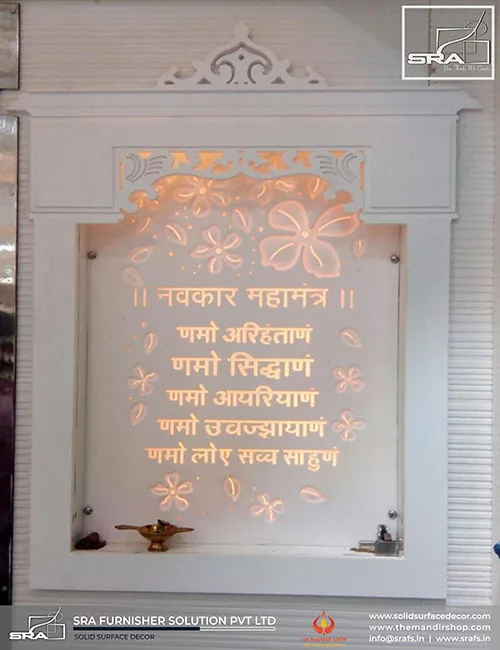 SRA
You Think, We Create
|| नवकार महामंत्र ||
णमो अरिहंताणं
णमो सिद्धाणं
णमो आयरियाणं
णमो उवज्झायाणं
णमो लोए सव्व साहुणं
SRA
SRA FURNISHER SOLUTION PVT LTD
SOLID SURFACE DECOR
THE MANDIR SHOP
www.solidsurfacedecor.com
www.themandirshop.com
info@srafs.in | www.srafs.in